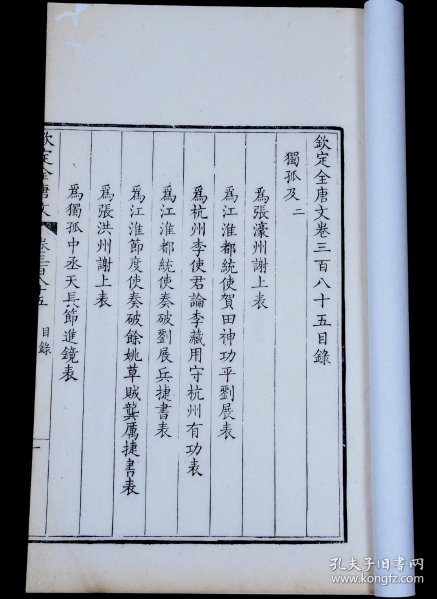 欽定全唐文卷三百八十五目錄
獨孤及 二
爲張濠州謝上表
爲江淮都統使賀田神功平劉展表
爲杭州李使君論李藏用守杭州有功表
爲江淮都統使奏破劉展兵捷書表
爲江淮節度使奏破餘姚草賊龔厲捷書表
爲張洪州謝上表
爲獨孤中丞天長節進鏡表
欽定全唐文 卷三百八十五 目錄 一
孔夫子旧书网
www.kongfz.com